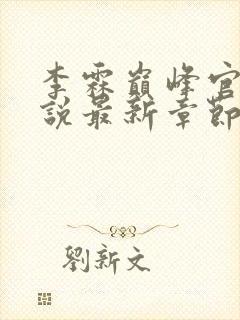 李霖巔峰官
說最新章節
劉新文